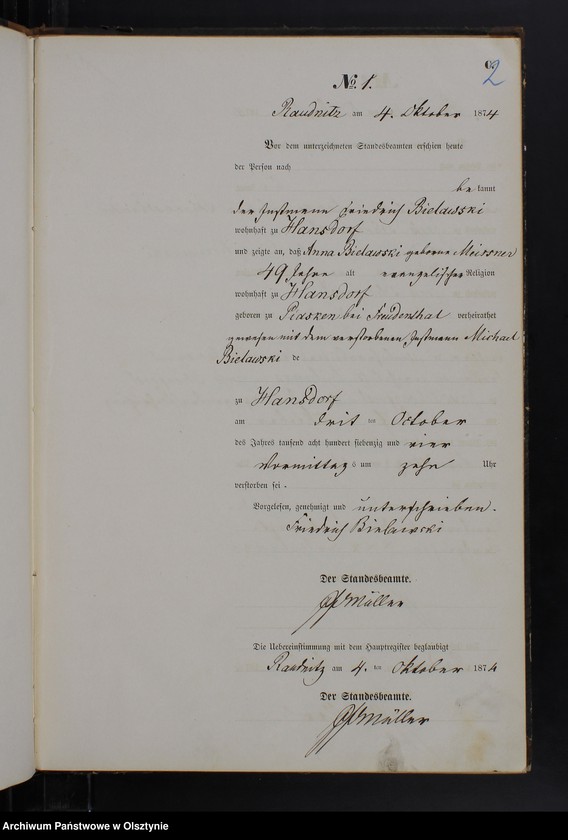 C.
2
No. 1.
Raudnitz am 4. Oktober 1874
Vor dem unterzeichneten Standesbeamten erschien heute
der Person nach
be kannt
der Instmann Friedrich Bielawski
wohnhaft zu Hansdorf
und zeigte an, daß Anna Bielawski geborne Meissner
49 Jahre alt evangelischer Religion
wohnhaft zu Hansdorf
geboren zu bei Freudenthal verheirathet
gewesen mit dem verstorbenen Instmann Michael
Bielawski de
zu Hansdorf
am drit ten October
des Jahres tausend acht hundert siebenzig und vier
Vormittag s um zehn Uhr
verstorben sei.
Vorgelesen, genehmigt und unterschrieben.
Friedrich Bielawski
Der Standesbeamte.
Müller
Die Uebereinstimmung mit dem Hauptregister beglaubigt
Raudnitz am 4. ten Oktober 1874
Der Standesbeamte.
Müller
Archiwum Państwowe w Olsztynie